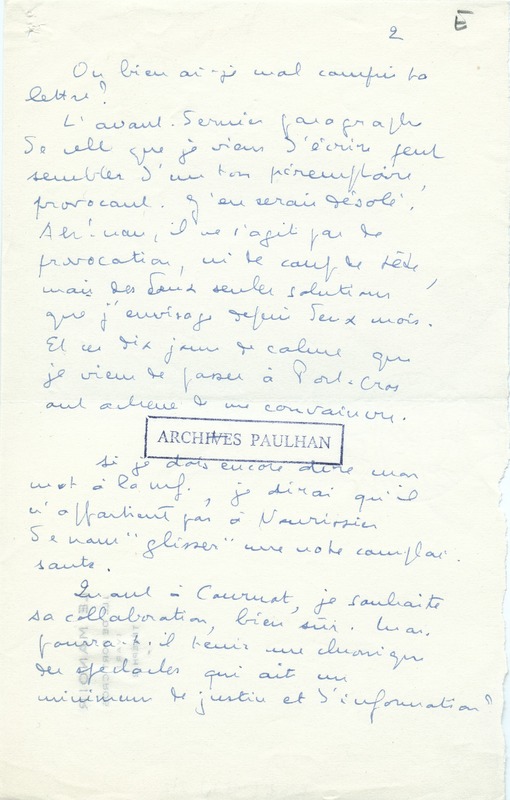 2
E
Ou bien ai-je mal compris ta
lettre?
L'avant-dernier paragraphe
de celle que je viens d'écrire peut
sembler d'un ton péremptoire,
provocant. J'en serais désolé.
Ah! non, il ne s'agit pas de
provocation, ni de coup de tête,
mais des deux seules solutions
que j'envisage depuis deux mois.
Et ces dix jours de calme que
je viens de passer à Port-Cros
ont achevé de me convaincre.
ARCHIVES PAULHAN
Si je dois encore dire mon
mot à la nrf., je dirai qu'il
n'appartient pas à Nourissier
de nous "glisser" une note complai-
sante.
Quant à Cournot, je souhaite
sa collaboration, bien sûr. Mais
pourra-t-il tenir une chronique
des spectacles qui ait un
minimum de justice et d'information?